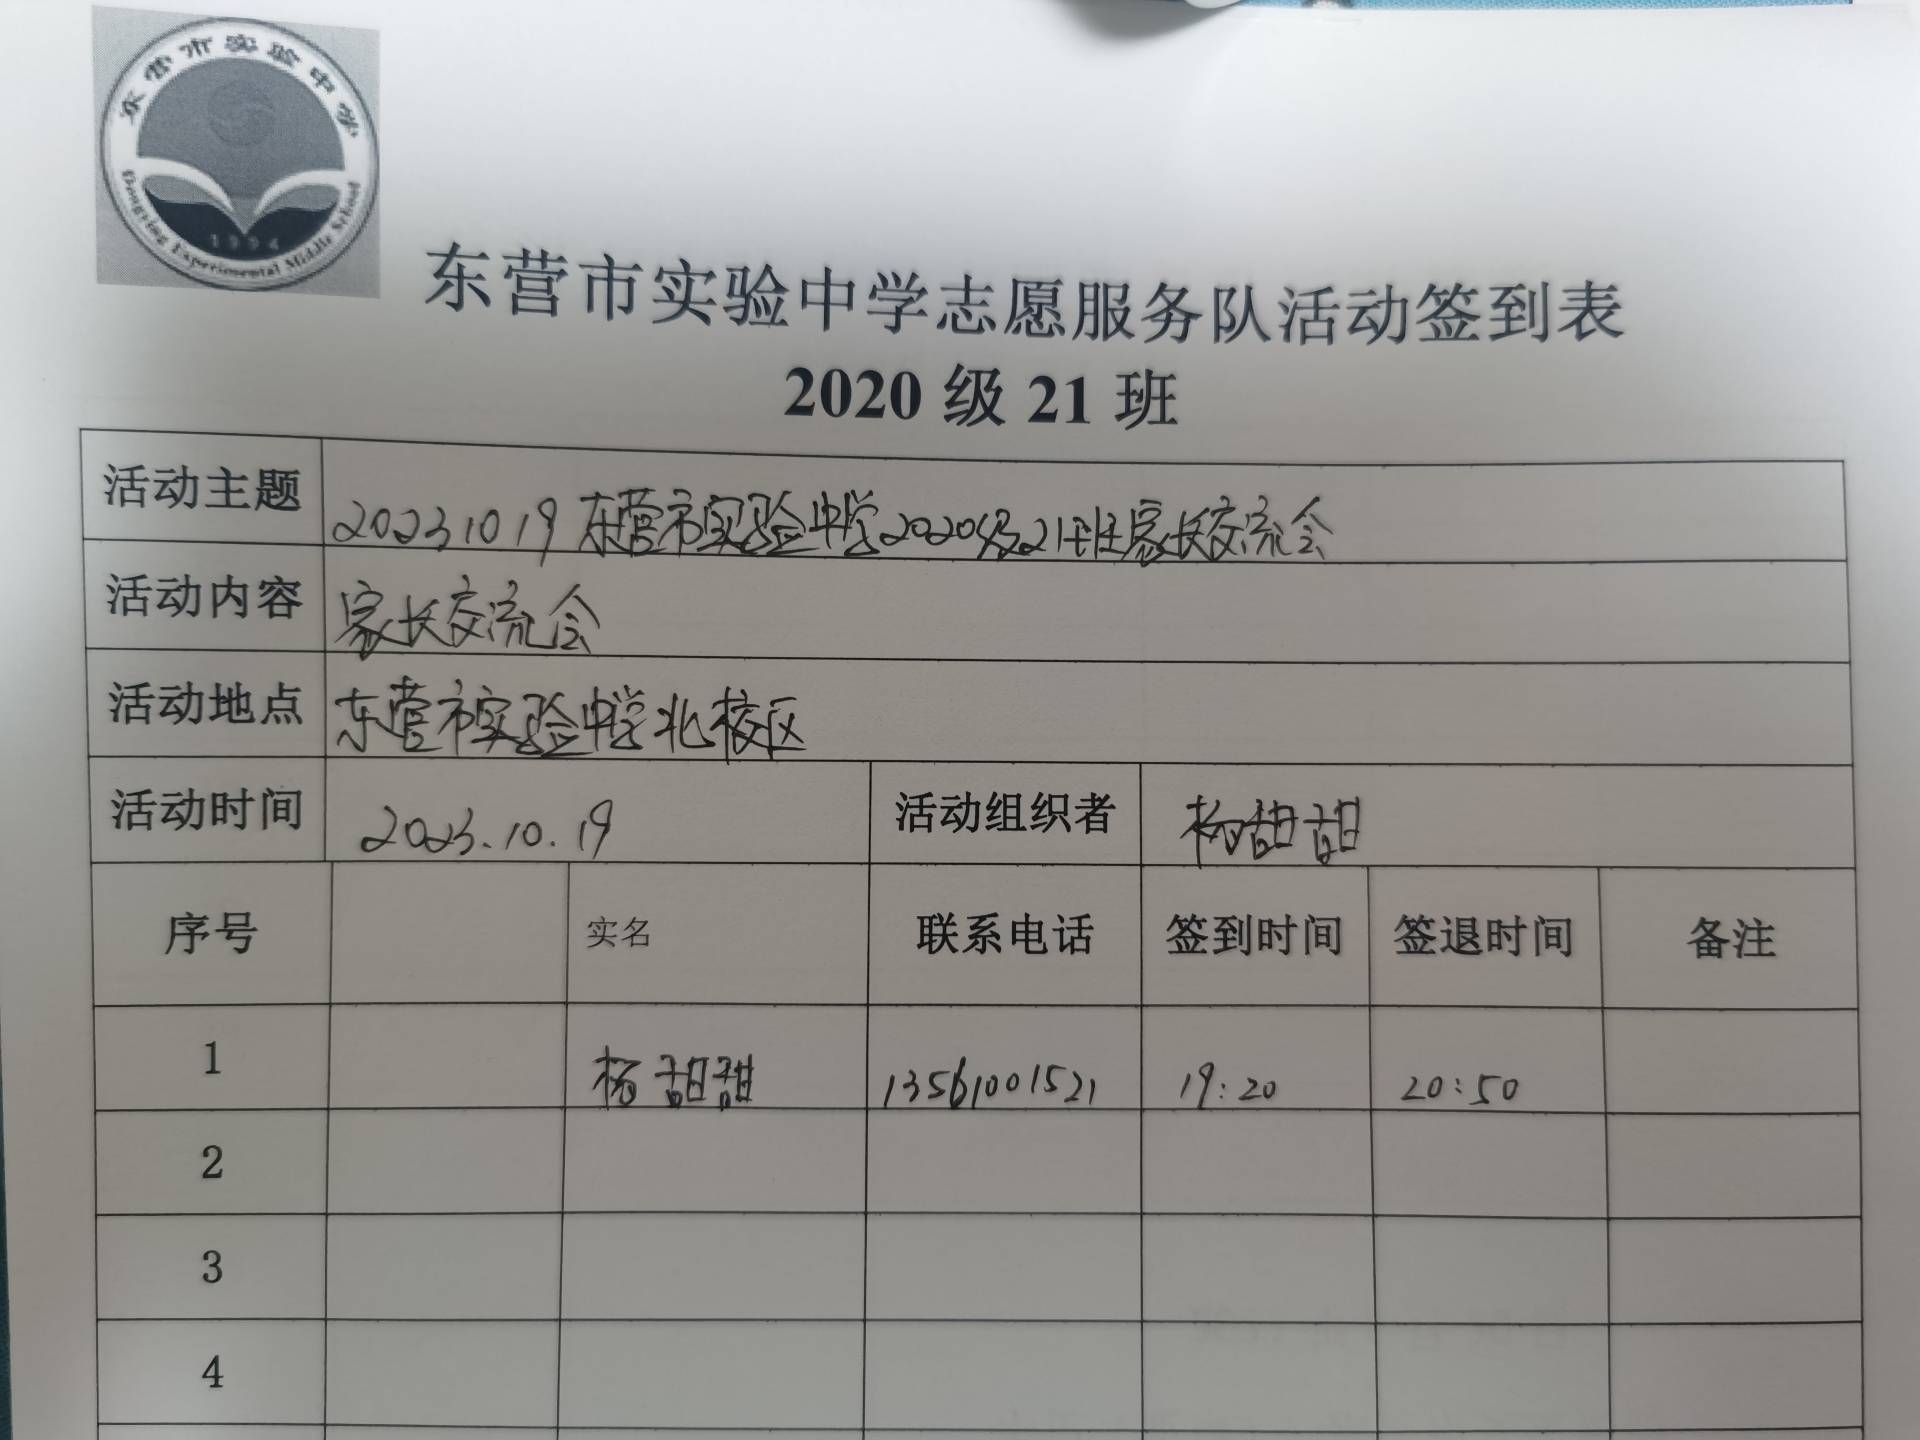 东营市实验中学
Dongying Experimental Middle School
1994
东营市实验中学志愿服务队活动签到表
2020 级 21 班
活动主题 20231019 东营市实验中学2020级21班家长交流会
活动内容 家长交流会
活动地点 东营市实验中学北校区
活动时间 2023.10.19 活动组织者 杨甜甜
序号 实名 联系电话 签到时间 签退时间 备注
1 杨甜甜 13561001521 19:20 20:50
2
3
4